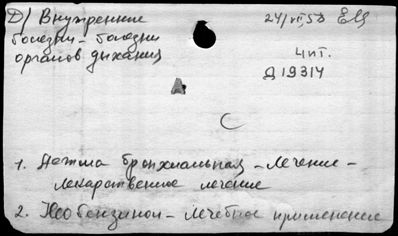 Д) Внутренние
болезни - болезни
органов дыхания
24/VII,53 ЕМ
Чит.
Д19314
А
1. Астма бронхиальная - лечение -
лекарственное лечение
2. Необензинол - лечебное применение